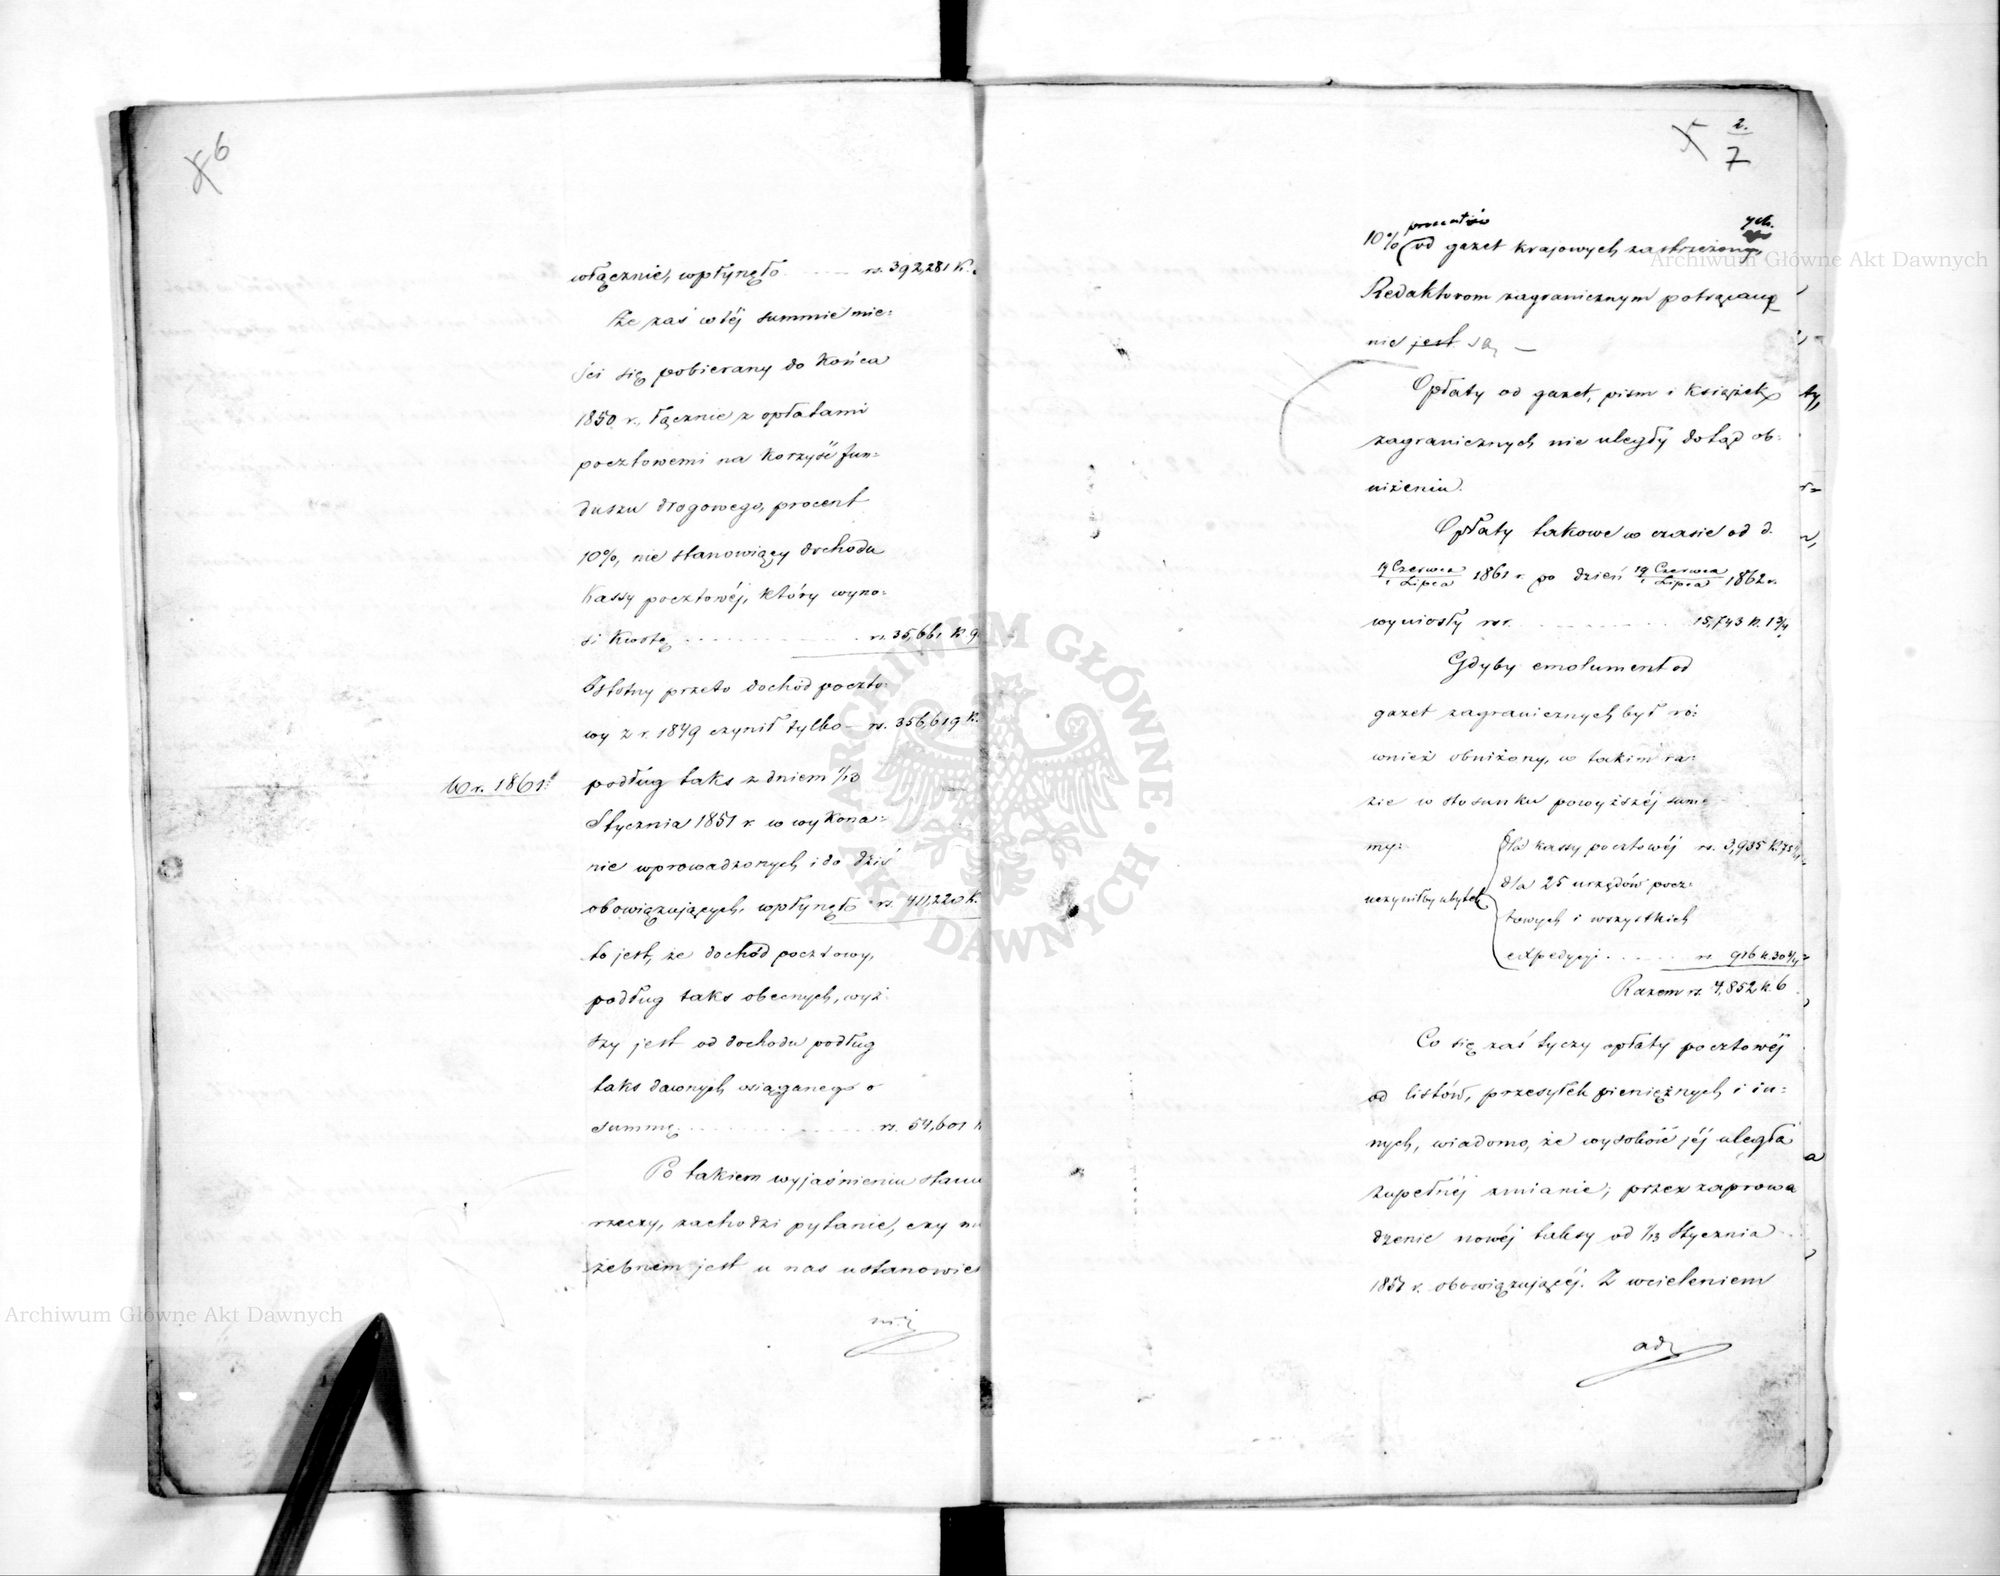 6
włącznie, wpłynęło ..... rs. 392,281 k.
Że zaś w téj summie mie=
ści się pobierany do końca
1850 r., łącznie z opłatami
pocztowemi na korzyść fun=
duszu drogowego, procent
10%, nie stanowiący dochodu
kassy pocztowéj, który wyno=
si kwotę ..... rs. 35,661 k. 9
Istotny przeto dochód poczto=
wy z r. 1849 czynił tylko – rs. 356,619 k.
W r. 1861: podług taks z dniem 1/13
Stycznia 1851 r. w wykona=
nie wprowadzonych i do dziś
obowiązujących, wpłynęło rs. 411,220 k.
to jest, że dochód pocztowy,
podług taks obecnych, wyż=
szy jest od dochodu podług
taks dawnych osiąganego o
summę ..... rs. 54,601 k
Po takiem wyjaśnieniu stanu
rzeczy, zachodzi pytanie, czy
żebnem jest u nas ustanowie
2.
7
procentów
10% od gazet krajowych zastrzeżonych
Redaktorom zagranicznym potrącane
nie jest są —
Opłaty od gazet, pism i książek
zagranicznych nie uległy dotąd ob=
niżeniu.
Opłaty takowe w czasie od d.
19 Czerwca / 1 Lipca 1861 r. po dzień 19 Czerwca / 1 Lipca 1862 r.
wyniosły rsr. ..... 15,743 k. 1 3/4
Gdyby emolument od
gazet zagranicznych był ró=
wnież obniżony, w takim ra=
zie w stosunku powyższéj sum=
my: dla kassy pocztowéj rs. 3,935 k. 75
uczyniłby ubytek dla 25 urzędów pocz=
towych i wszystkich
expedycji ..... rs. 916 k. 30
Razem rs. 4,852 k. 6
Co się zaś tyczy opłaty pocztowéj
od listów, przesyłek pieniężnych i in=
nych, wiadomo, że wysokość jéj uległa
zupełnéj zmianie; przez zaprowa
dzenie nowéj taksy od 1/13 Stycznia
1851 r. obowiązującéj. Z wcieleniem
Archiwum Główne Akt Dawnych
Archiwum Główne Akt Dawnych
ARCHIWUM GŁÓWNE · AKT DAWNYCH ·